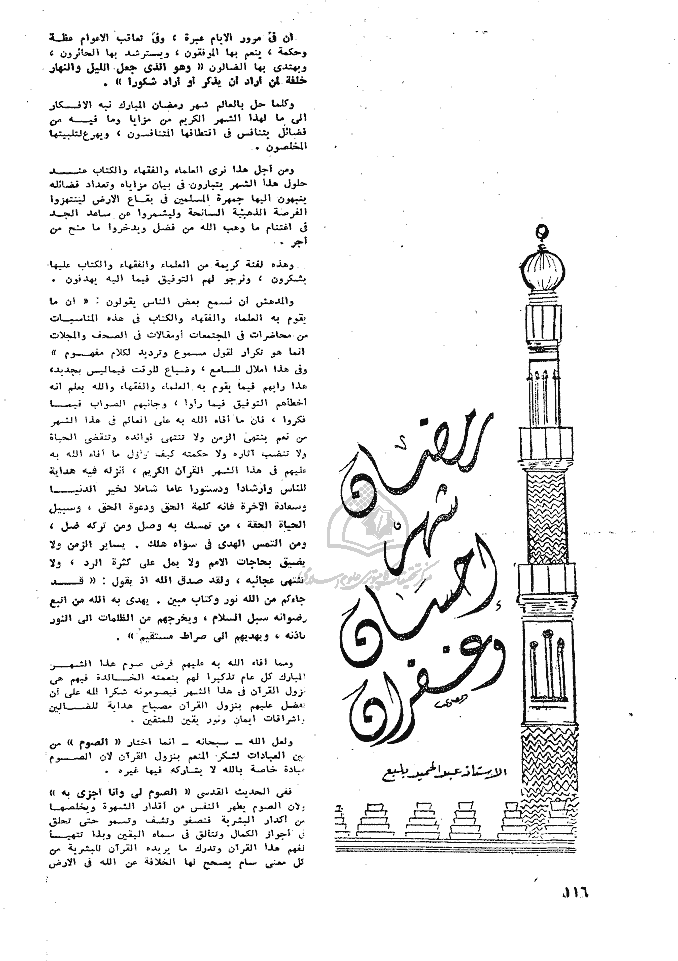 رمضان
شهر
إحسان
وغفران
الاستاذ عبد الحميد بلبع
ان فى مرور الايام عبرة ، وفى تعاقب الاعوام عظة
وحكمة ، ينعم بها الموفقون ، ويسترشد بها الحائرون ،
ويهتدى بها الضالون « وهو الذى جعل الليل والنهار
خلفة لمن أراد أن يذكر أو أراد شكورا » .
وكلما حل بالعالم شهر رمضان المبارك نبه الافكار
الى ما لهذا الشهر الكريم من مزايا وما فيه من
فضائل يتنافس فى اقتطافها المتنافسون ، ويهرع لتلبيتها
المخلصون .
ومن أجل هذا نرى العلماء والفقهاء والكتاب عند
حلول هذا الشهر يتبارون فى بيان مزاياه وتعداد فضائله
ينبهون اليها جمهرة المسلمين فى بقاع الارض لينتهزوا
الفرصة الذهبية السانحة وليشمروا عن ساعد الجد
فى اغتنام ما وهب الله من فضل ويدخروا ما منح من
أجر .
وهذه لفتة كريمة من العلماء والفقهاء والكتاب عليها
يشكرون ، ونرجو لهم التوفيق فيما اليه يهدفون .
والمدهش أن نسمع بعض الناس يقولون : « ان ما
يقوم به العلماء والفقهاء والكتاب فى هذه المناسبات
من محاضرات فى المجتمعات أومقالات فى الصحف والمجلات
انما هو تكرار لقول مسموع وترديد لكلام مفهوم »
وفى هذا املال للسامع ، وضياع للوقت فيماليس بجديد،
هذا رايهم فيما يقوم به العلماء والفقهاء والله يعلم انه
اخطأهم التوفيق فيما رأوا ، وجانبهم الصواب فيما
فكروا ، فان ما أفاء الله به على العالم فى هذا الشهر
من نعم ينتهى الزمن ولا تنتهى فوائده وتنقضى الحياة
ولا تنضب آثاره ولا حكمته كيف وأول ما أفاء الله به
عليهم فى هذا الشهر القرآن الكريم ، أنزله فيه هداية
للناس وارشادا ودستورا عاما شاملا لخير الدنيا
وسعادة الآخرة فانه كلمة الحق ودعوة الحق ، وسبيل
الحياة الحقة ، من تمسك به وصل ومن تركه ضل ،
ومن التمس الهدى فى سواه هلك . يساير الزمن ولا
يضيق بحاجات الامم ولا يمل على كثرة الرد ، ولا
تنتهى عجائبه ، ولقد صدق الله اذ يقول : « قد
جاءكم من الله نور وكتاب مبين . يهدى به الله من اتبع
رضوانه سبل السلام ، ويخرجهم من الظلمات الى النور
باذنه ، ويهديهم الى صراط مستقيم » .
ومما أفاء الله به عليهم فرض صوم هذا الشهر
المبارك كل عام تذكيرا لهم بنعمته الخالدة فيهم هى
نزول القرآن فى هذا الشهر فيصومونه شكرا لله على أن
تفضل عليهم بنزول القرآن مصباح هداية للضالين
واشراقات ايمان ونور يقين للمتقين .
ولعل الله ـ سبحانه ـ انما اختار « الصوم » من
بين العبادات لشكر المنعم بنزول القرآن لان الصوم
عبادة خاصة بالله لا يشاركه فيها غيره .
ففى الحديث القدسى « الصوم لى وأنا أجزى به »
ولان الصوم يطهر النفس من أقذار الشهوة ويخلصها
من أكدار البشرية فتصفو وتشف وتسمو حتى تحلق
فى أجواز الكمال وتتألق فى سماء اليقين وبذا تتهيأ
لفهم هذا القرآن وتدرك ما يريده القرآن للبشرية من
كل معنى سام يصحح لها الخلافة عن الله فى الارض
١١٦